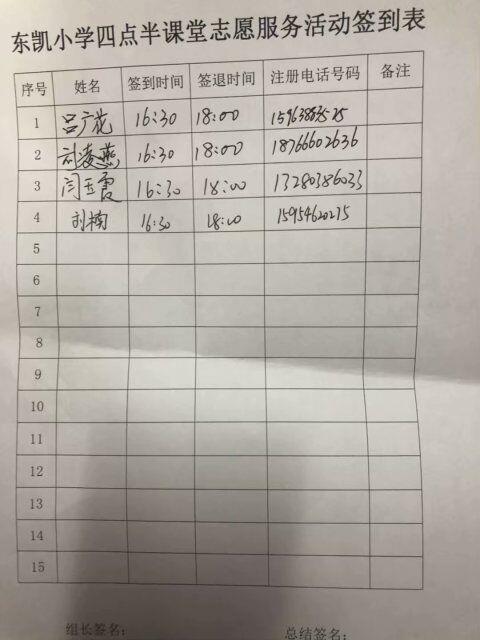 东凯小学四点半课堂志愿服务活动签到表
序号 姓名 签到时间 签退时间 注册电话号码 备注
1 吕广花 16:30 18:00 15963863525
2 刘凌燕 16:30 18:00 18766602636
3 闫玉霞 16:30 18:00 13280386033
4 刘楠 16:30 18:00 15954620215
5
6
7
8
9
10
11
12
13
14
15
组长签名: 总结签名: